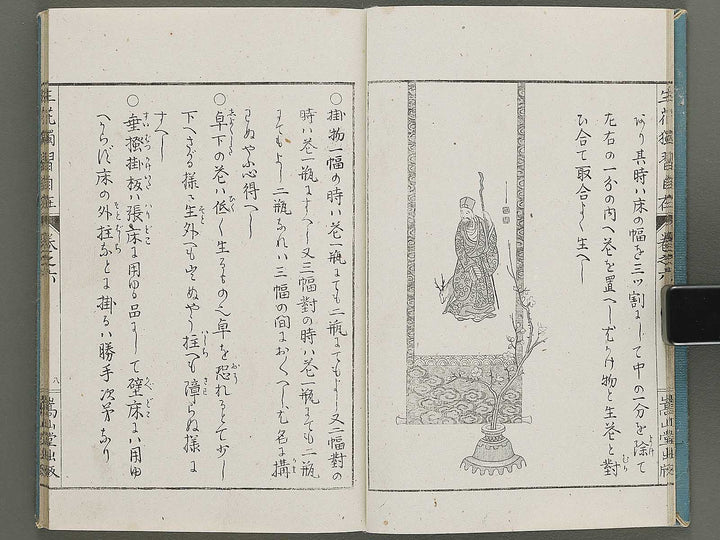 生花獨習自在
卷之六
嵩山堂藏版
あり其時ハ床の幅を三ッ割にして中の一分を除て
左右の一分の内へ巻を置へし尤かけ物と生花と對
ひ合て取合よく生へし
○掛物一幅の時ハ花一瓶にても二瓶にてもよし又二幅對の
時ハ花一瓶にすへし又三幅對の時ハ花一瓶にても二瓶
にてもよし二瓶なれハ三幅の間におくへし尤名に構
ハぬやふ心得へし
○卓下の花ハ低く生るもの也卓を恐れるとて少し
下へさがる様に生外へも出ぬやう柱へも障らぬ様に
すへし
○垂撥掛板ハ張床に用ゆる品にして壁床にハ用ゆ
へからす床の外柱などに掛るハ勝手次第なり
生花獨習自在
卷之六
八
嵩山堂藏版